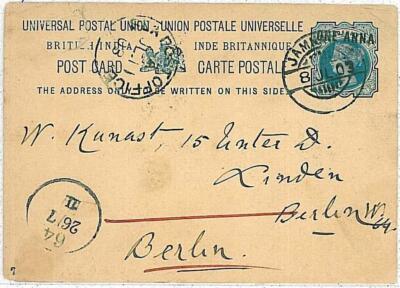 UNIVERSAL POSTAL UNION UNION POSTALE UNIVERSELLE
BRITISH INDIA INDE BRITANNIQUE
POST CARD CARTE POSTALE
THE ADDRESS ON BE WRITTEN ON THIS SIDE
ONE ANNA
8 JL 03
OFFICE
W. Kunast, 15 Unter D.
Linden
Berlin W. 64.
Berlin.
64
26/7
II
7